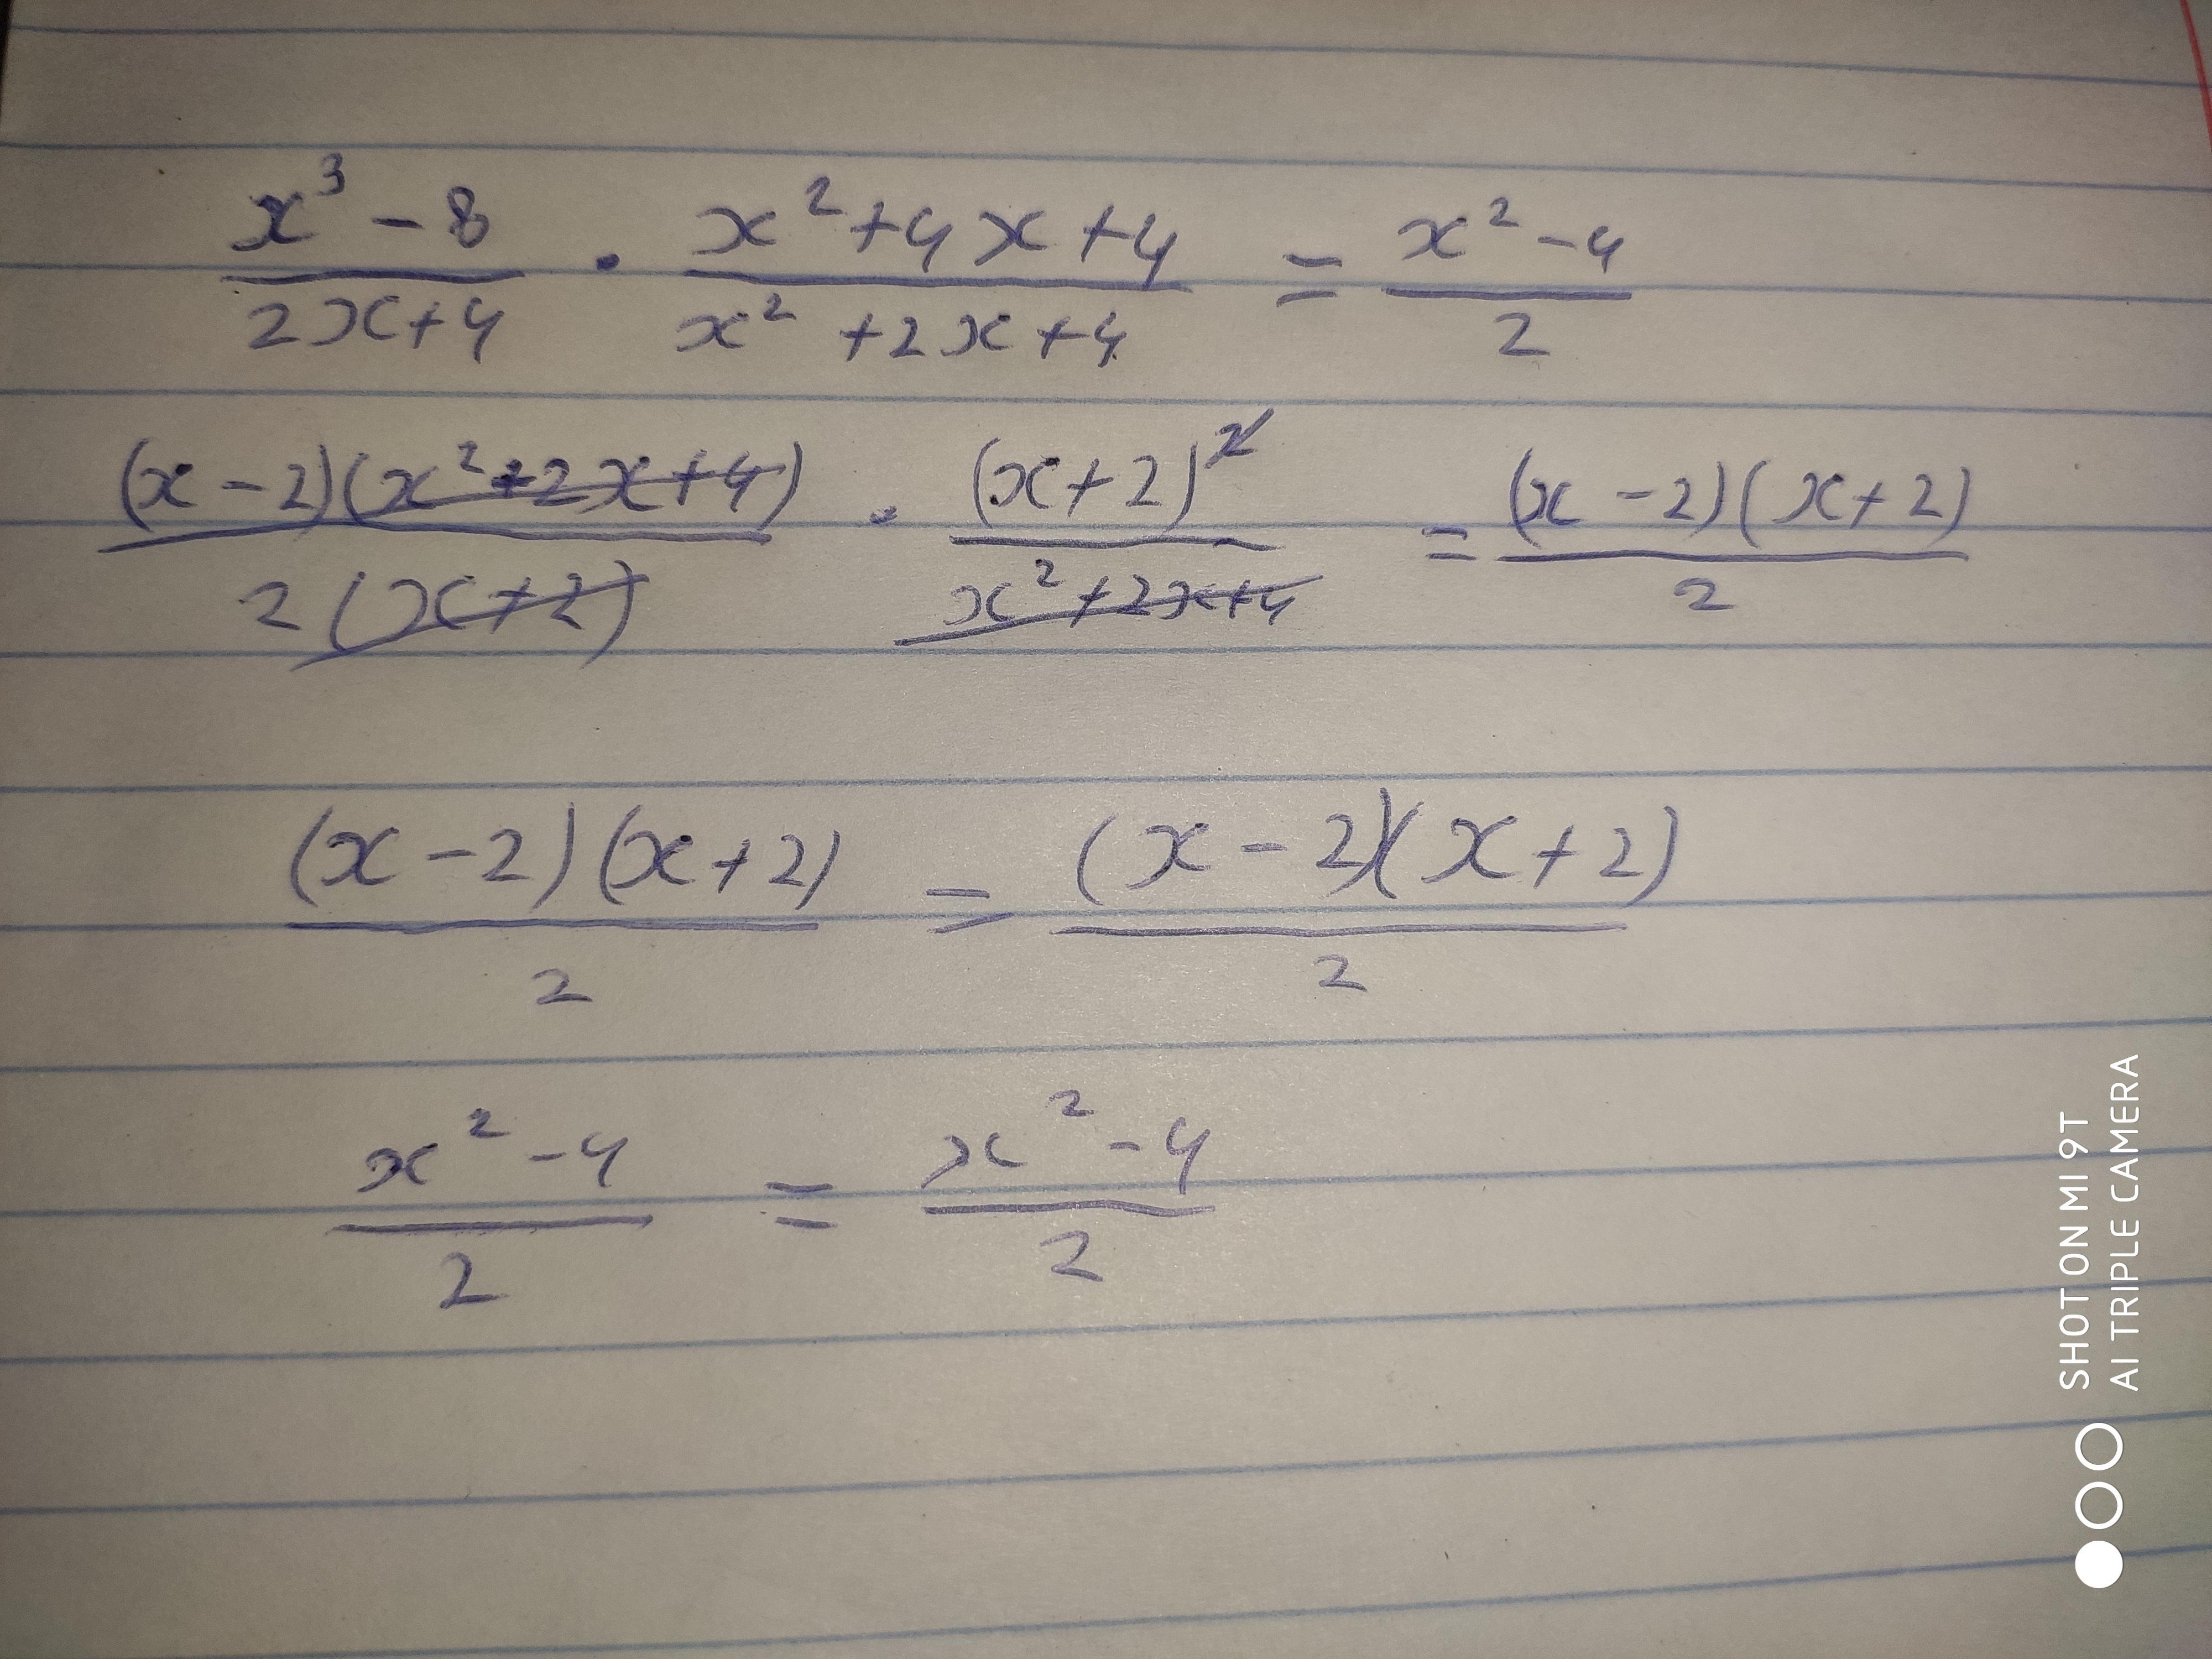 x³ - 8 / 2x+4 · x² + 4x + 4 / x² + 2x + 4 = x² - 4 / 2
(x - 2)(x² + 2x + 4) / 2(x+2) · (x+2)² / x² + 2x + 4 = (x - 2)(x + 2) / 2
(x - 2)(x + 2) / 2 = (x - 2)(x + 2) / 2
x² - 4 / 2 = x² - 4 / 2
SHOT ON MI 9T
AI TRIPLE CAMERA